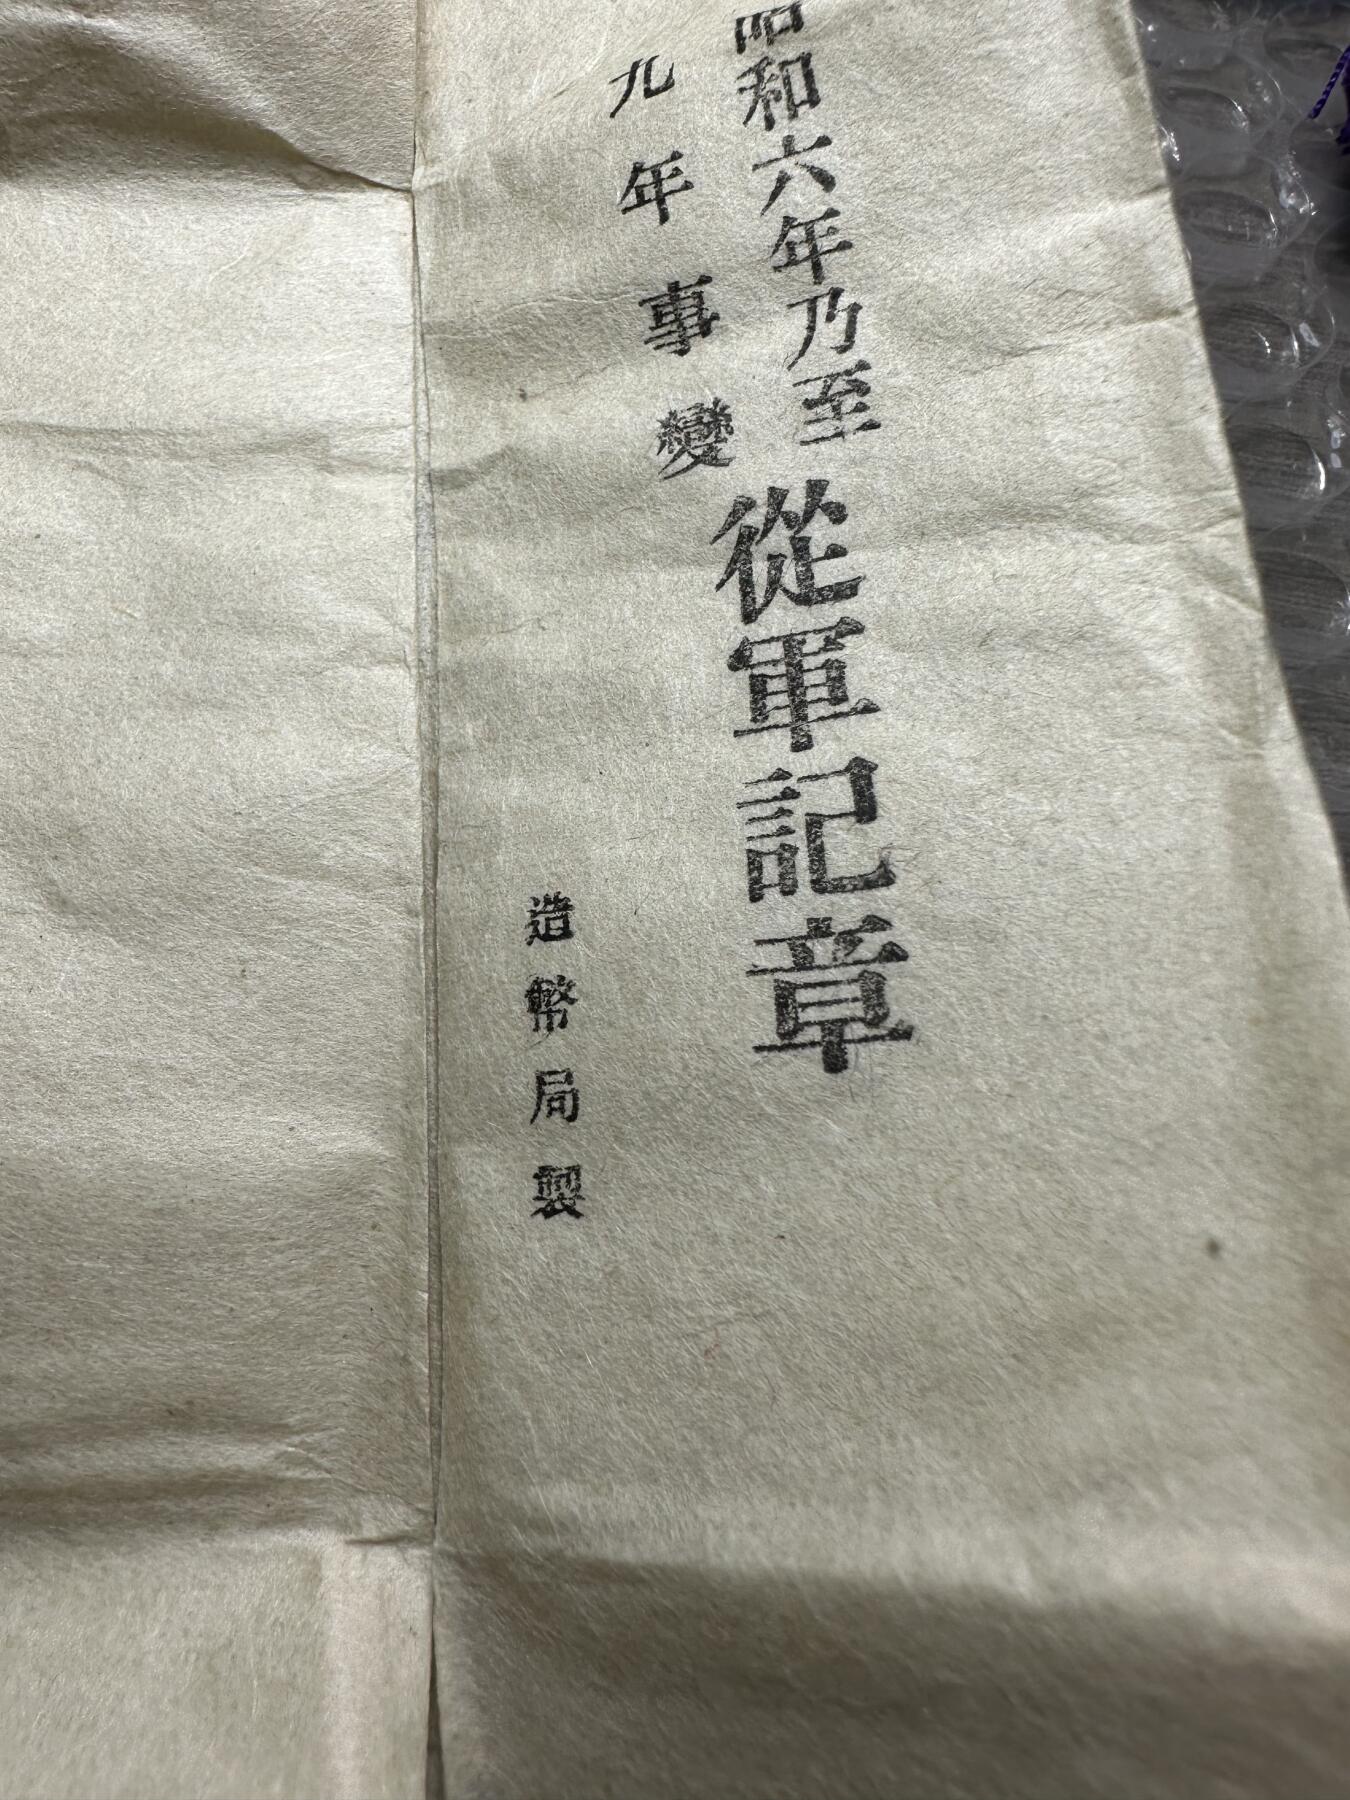 昭和六年乃至
九年事變
從軍記章
造幣局製